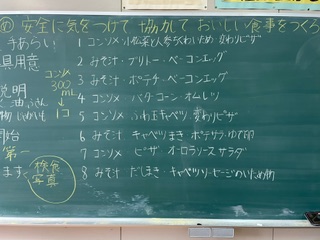 め 安全に気をつけて 協力して おいしい食事をつくろ
手あらい
具用意
説明
開始
第一
ます。
コンソメ
300
mL
↓
1コ
検食
写真
1 コンソメ 小松菜と人参
2 みそ汁・ブリトー・ベーコンエッグ
3 みそ汁・ポテチ・ベーコンエッグ
4 コンソメ バターコーン オムレツ
5 コンソメ 変わりピザ
6 みそ汁 キャベツまき ポテサラ・ゆで卵
7 コンソメ ピザ オーロラソースサラダ
8 みそ汁 だしまき・キャベツソーセージのいため物